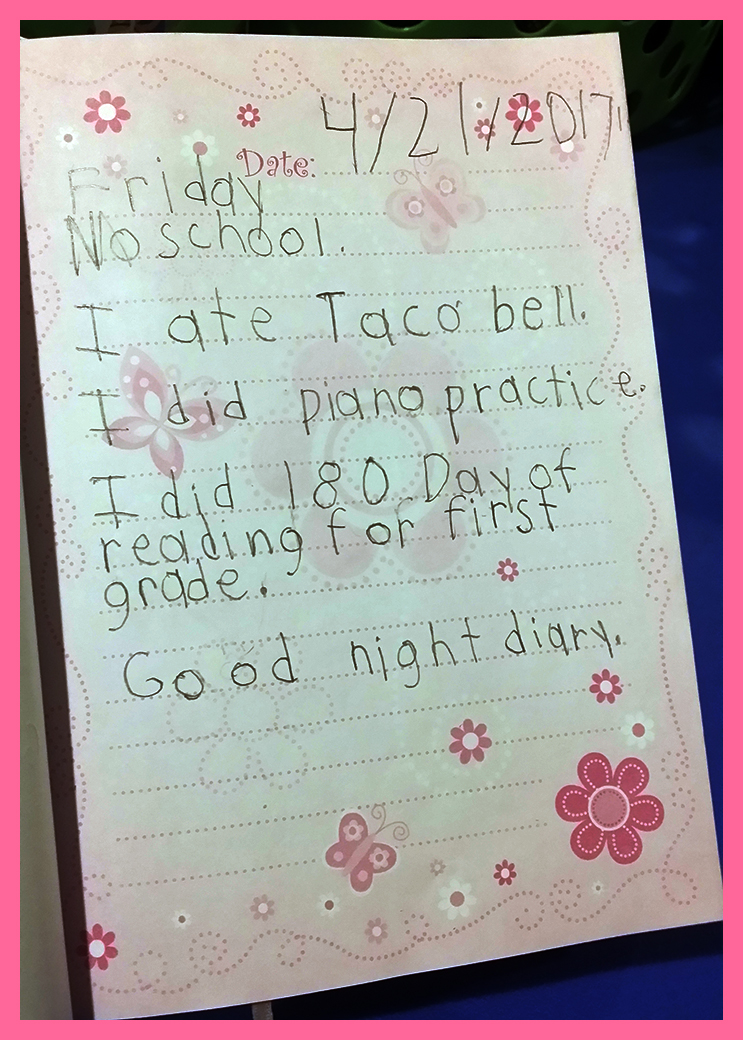 Date: 4/21/2017
Friday
No school.
I ate Taco bell.
I did piano practice.
I did 180 Day of
reading for first
grade.
Good night diary.